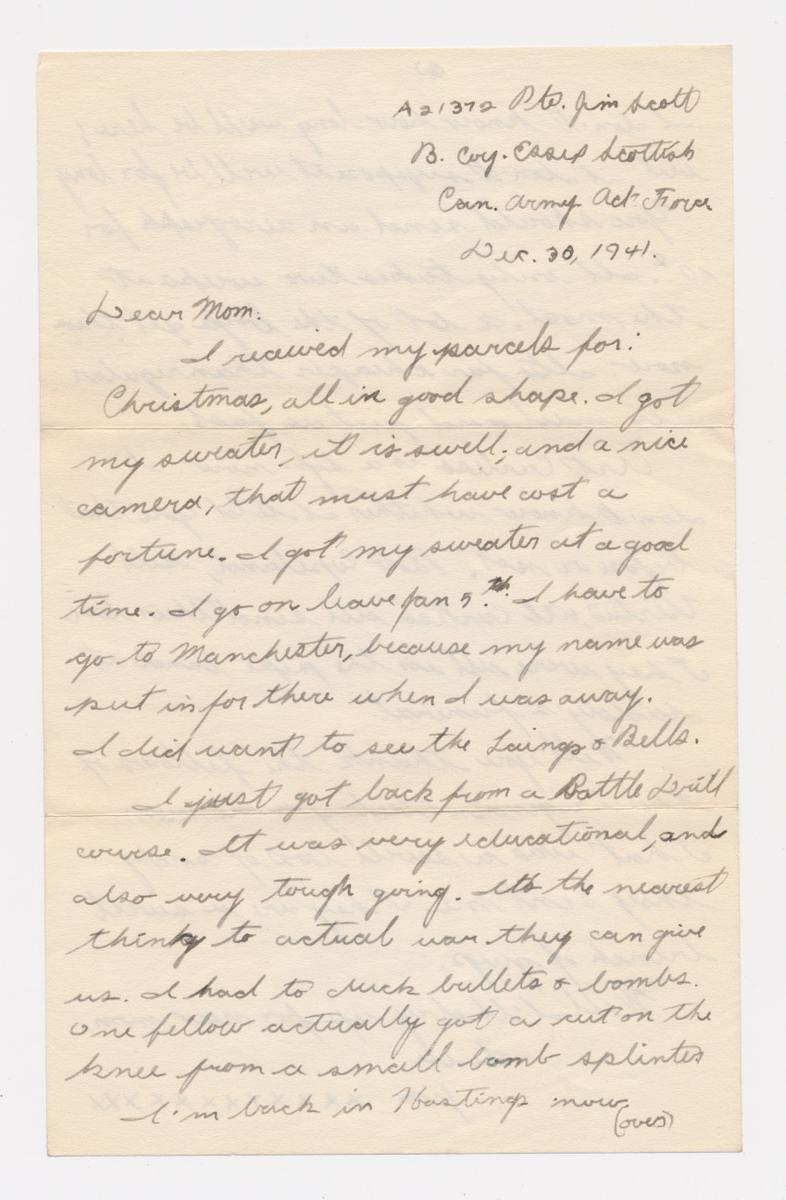 A21372 Pte. Jim Scott
B. Coy. Essex Scottish
Can. Army Act Force
Dec. 30, 1941.
Dear Mom:
I received my parcels for
Christmas, all in good shape. I got
my sweater, it is swell; and a nice
camera, that must have cost a
fortune. I got my sweater at a good
time. I go on leave Jan 5th. I have to
go to Manchester, because my name was
put in for there when I was away.
I did want to see the Laings & Bells.
I just got back from a Battle Drill
course. It was very educational, and
also very tough going. It's the nearest
thing to actual war they can give
us. I had to duck bullets & bombs.
One fellow actually got a cut on the
knee from a small bomb splinter
I'm back in Hastings now
(over)